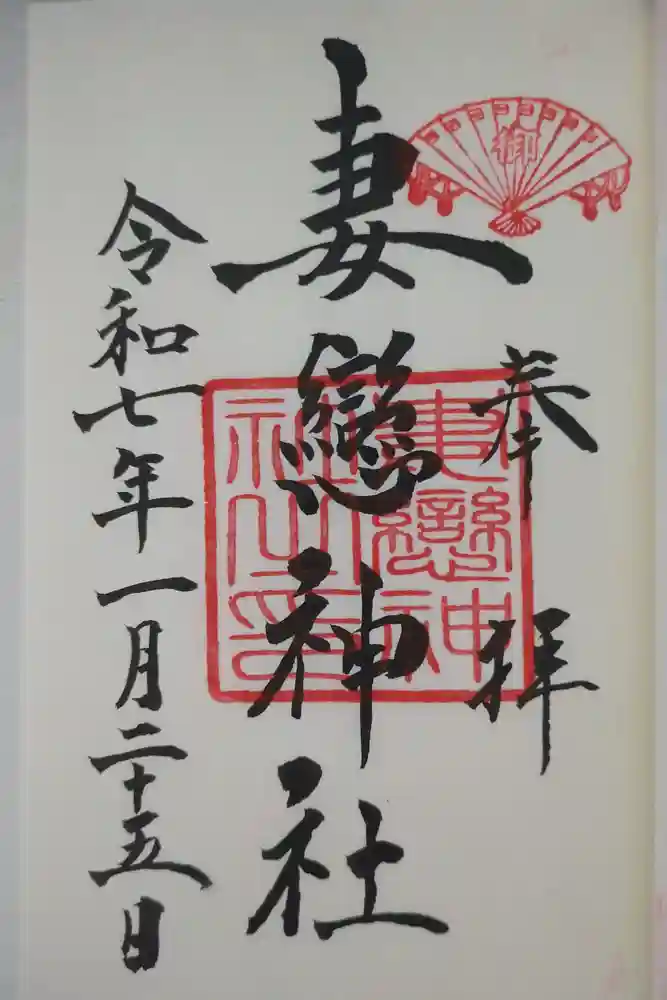 御
奉拝
妻戀神社
妻戀神社之印
令和七年一月二十五日